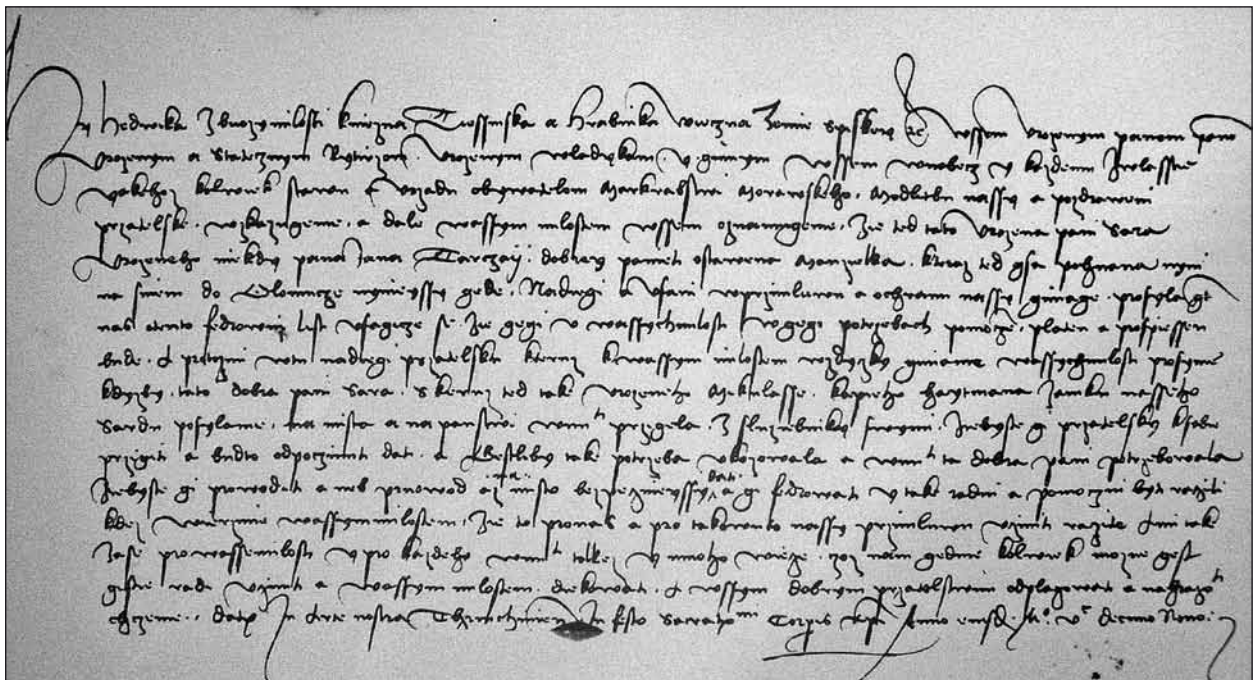 My Hedwika Zbuozymilosti kniezna Tiessinska a hrabinka wieczna Zemie Spisskey ꝛc wssem Urozenym panom pano
Urozenym a Statecznym Rytirzom, Urozenym wladykam, y ginym wssem wuobecz y kazdemu zwlasstie
yakehoz kolwiek stawu a urzadu obywatelom Markrabstwi Morawskeho, Modlitbu nassy a pozdraweni
przatelske, wzkazugeme, a dale wassym milostem wssem oznamugeme, Zie ted tato Urozena pani Sara
Urozeneho niekdy pana Jana Tarczaij, dobrey pameti ostawena Manzielka, kteraz ted gsa pohnana nyni
na sniem do Olomucze nynieyssy gede, Nadiegi a Ufani w przimluwu a ochranu nassy gmage, prosyla gt
nas o tento fedrowni list ufagicze se zie gegi u wassychmilosti w gegi potrzebach pomocze, platen a prospiessen
bude, A protozni w tu nadiegi przatelsku kteruz k wassym milostem wzdyczky gmame wassychmilosti prosyme
kdyzby, tato dobra pani Sara, s kteruz ted take Urozeneho Mikulasse, haytmana Zamku nasseho
posylame, na mista a na panstwi przigela, Z sluzebniky swymi, zebyste gi przatelsky k sobie
przigiti a budto odpoczinuti dati, a gestliby take potrzeba ukazowala a ta dobra pani potrzebowala
Zebyste gi prowoditi a neb pruowod az na misto bezpeczneyssy dati a gi fedrowati y take radni a pomoczni byti raczili
wierzime wassymmilostem, zie to pronas a pro takowuto nassy przimluwu uziniti raczite A mi take
Zase prowassemilosti y pro kazdeho w tolkez y mnoho wieze, coz nam gedine kolwiek mozne gest
gistie rada uziniti a wassym milostem diekowati, A wssym dobrym przatelstwim odplaczowati a nahrazo
chczeme, datum In Arce nostra In festo Sacratissimi Corporis Christi Anno eiusdem M° V° decimo Nono.